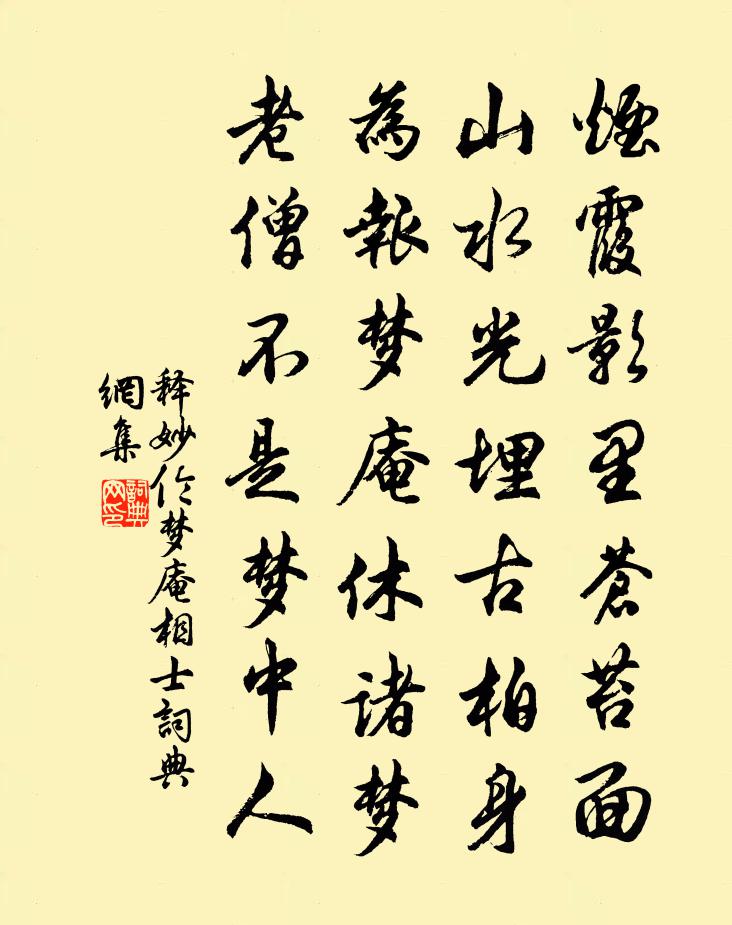 煙霞影里蒼苔面
山水光埋古柏身
為報梦庵休诸梦
老僧不是梦中人
释妙伦梦庵相士詞典
網集
詞典
网印